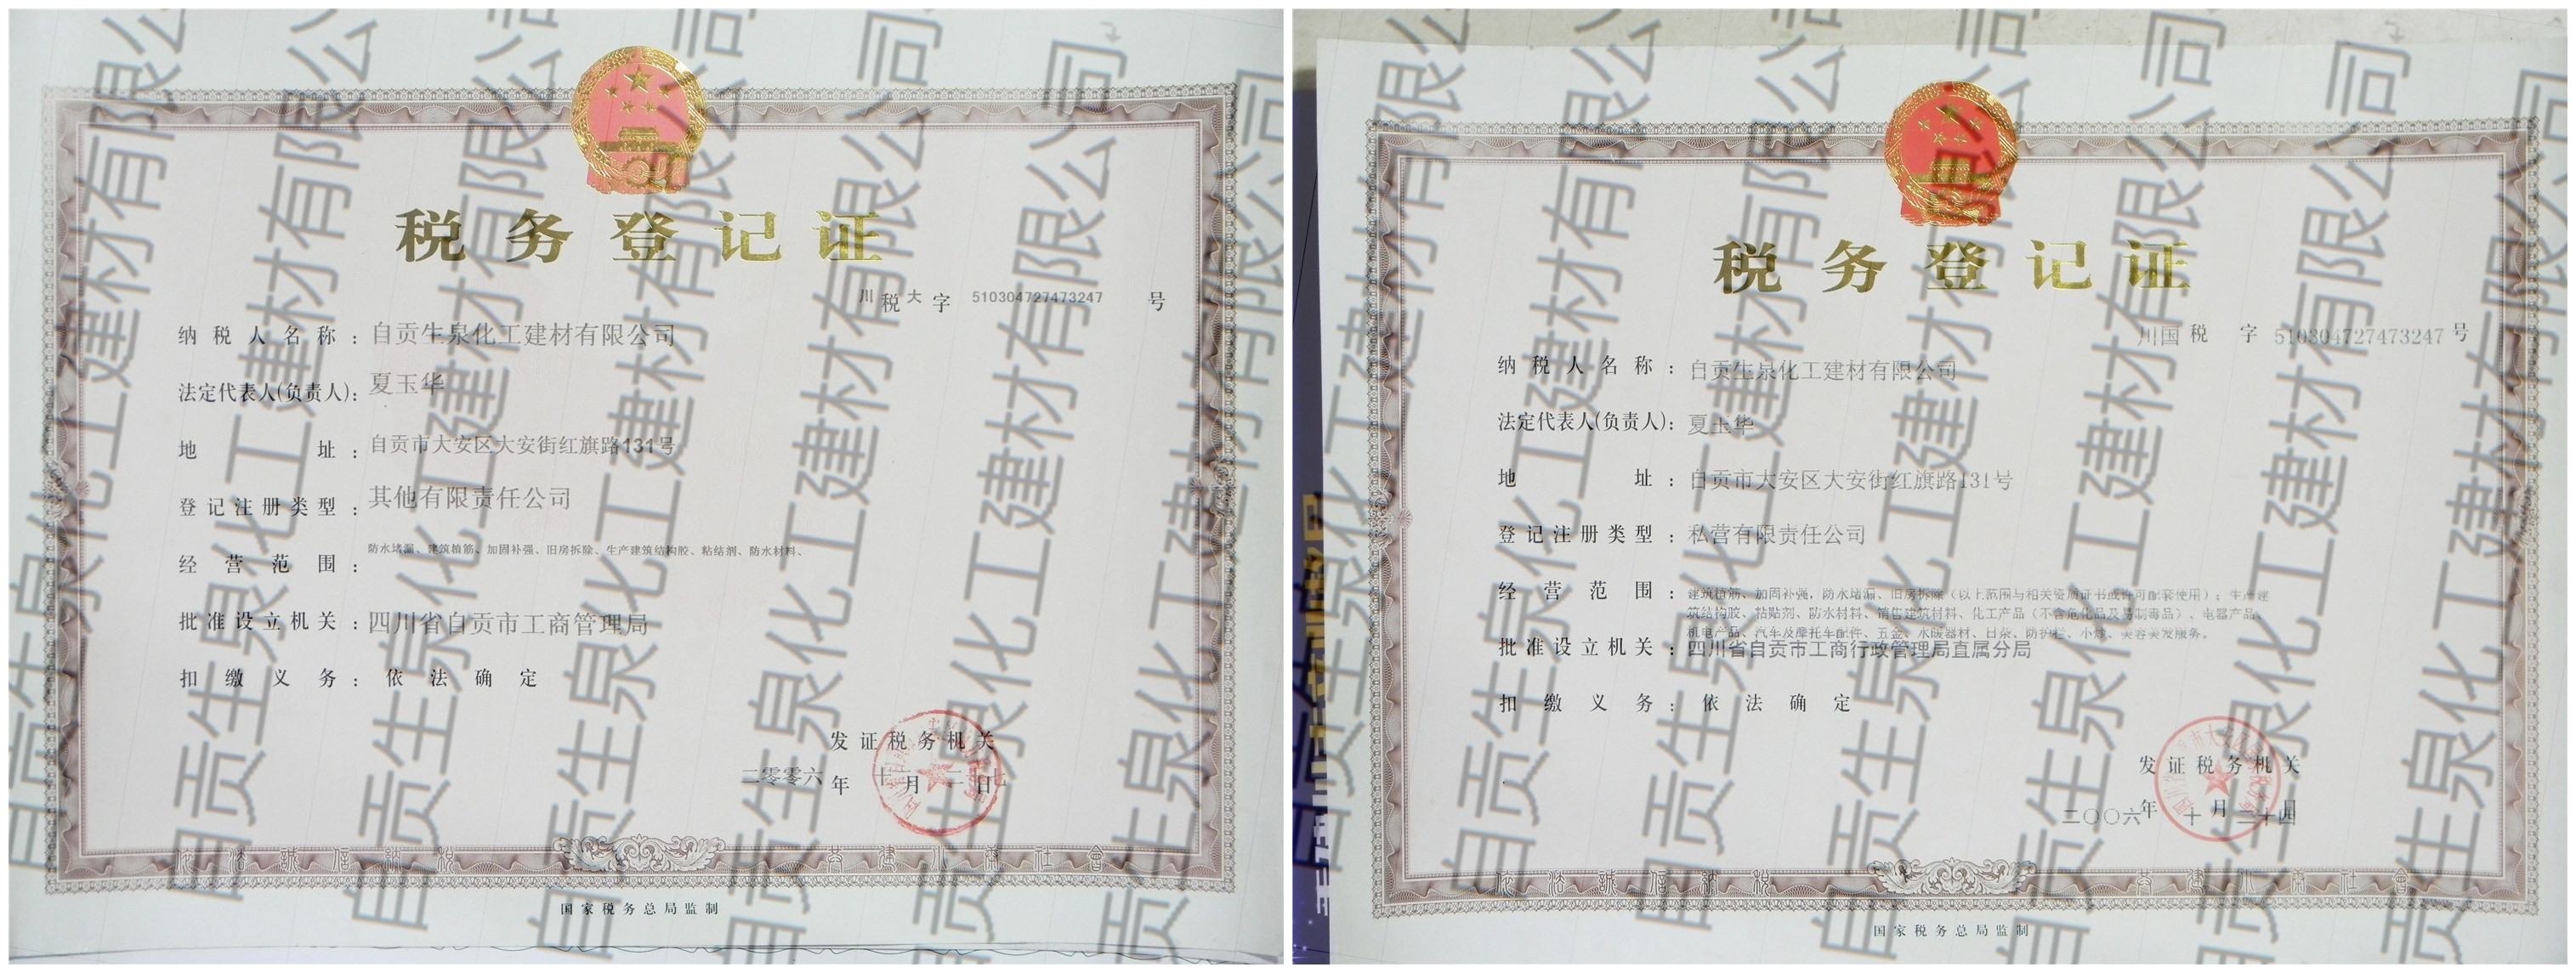 税务登记证
川税大字 510304727473247 号
纳税人名称：自贡生泉化工建材有限公司
法定代表人(负责人)：夏玉华
地址：自贡市大安区大安街红旗路131号
登记注册类型：其他有限责任公司
经营范围：防水堵漏、建筑植筋、加固补强、旧房拆除、生产建筑结构胶、粘结剂、防水材料、
批准设立机关：四川省自贡市工商管理局
扣缴义务：依法确定
发证税务机关
二零零六年
依法诚信纳税 共建小康社会
国家税务总局监制
税务登记证
川国税字 510304727473247 号
纳税人名称：自贡生泉化工建材有限公司
法定代表人(负责人)：夏玉华
地址：自贡市大安区大安街红旗路131号
登记注册类型：私营有限责任公司
经营范围：建筑植筋、加固补强，防水堵漏、旧房拆除（以上范围与相关资质证书或许可配套使用）；生产建
筑结构胶、粘贴剂、防水材料、销售建筑材料、化工产品（不含危化品及易制毒品）、电器产品、
机电产品、汽车及摩托车配件、五金、水暖器材、日杂、防护栏、小炒、美容美发服务。
批准设立机关：四川省自贡市工商行政管理局直属分局
扣缴义务：依法确定
发证税务机关
二〇〇六年十月二十四日
国家税务总局监制
自贡生泉化工建材有限公司